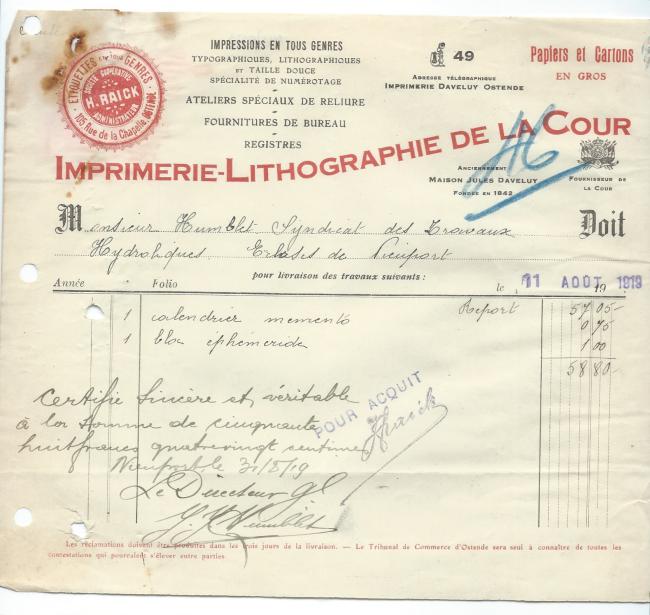 ÉTIQUETTES en tous GENRES
SOCIÉTÉ COOPÉRATIVE
H. RAICK
ADMINISTRATEUR
105 Rue de la Chapelle, OSTENDE
IMPRESSIONS EN TOUS GENRES
TYPOGRAPHIQUES, LITHOGRAPHIQUES
ET TAILLE DOUCE
SPÉCIALITÉ DE NUMÉROTAGE
ATELIERS SPÉCIAUX DE RELIURE
FOURNITURES DE BUREAU
REGISTRES
49
ADRESSE TÉLÉGRAPHIQUE
IMPRIMERIE DAVELUY OSTENDE
Papiers et Cartons
EN GROS
46
IMPRIMERIE-LITHOGRAPHIE DE LA COUR
ANCIENNEMENT
MAISON JULES DAVELUY
FONDÉE EN 1842
FOURNISSEUR DE
LA COUR
Monsieur Humblet Syndicat des Travaux Doit
Hydroliques Ecluses de Nieuport
pour livraison des travaux suivants :
Année Folio le 11 AOÛT 1919 19
Report 57 05-
1 calendrier memento 0 75
1 bloc éphéméride 1 00
58 80-
Certifié sincère et véritable
à la somme de cinquante
huit francs quatrevingt centimes
Nieuport le 31/8/19
Le Directeur gl
Humblet
POUR ACQUIT
HRaick
Les réclamations doivent être produites dans les trois jours de la livraison. — Le Tribunal de Commerce d'Ostende sera seul à connaître de toutes les
contestations qui pourraient s'élever entre parties